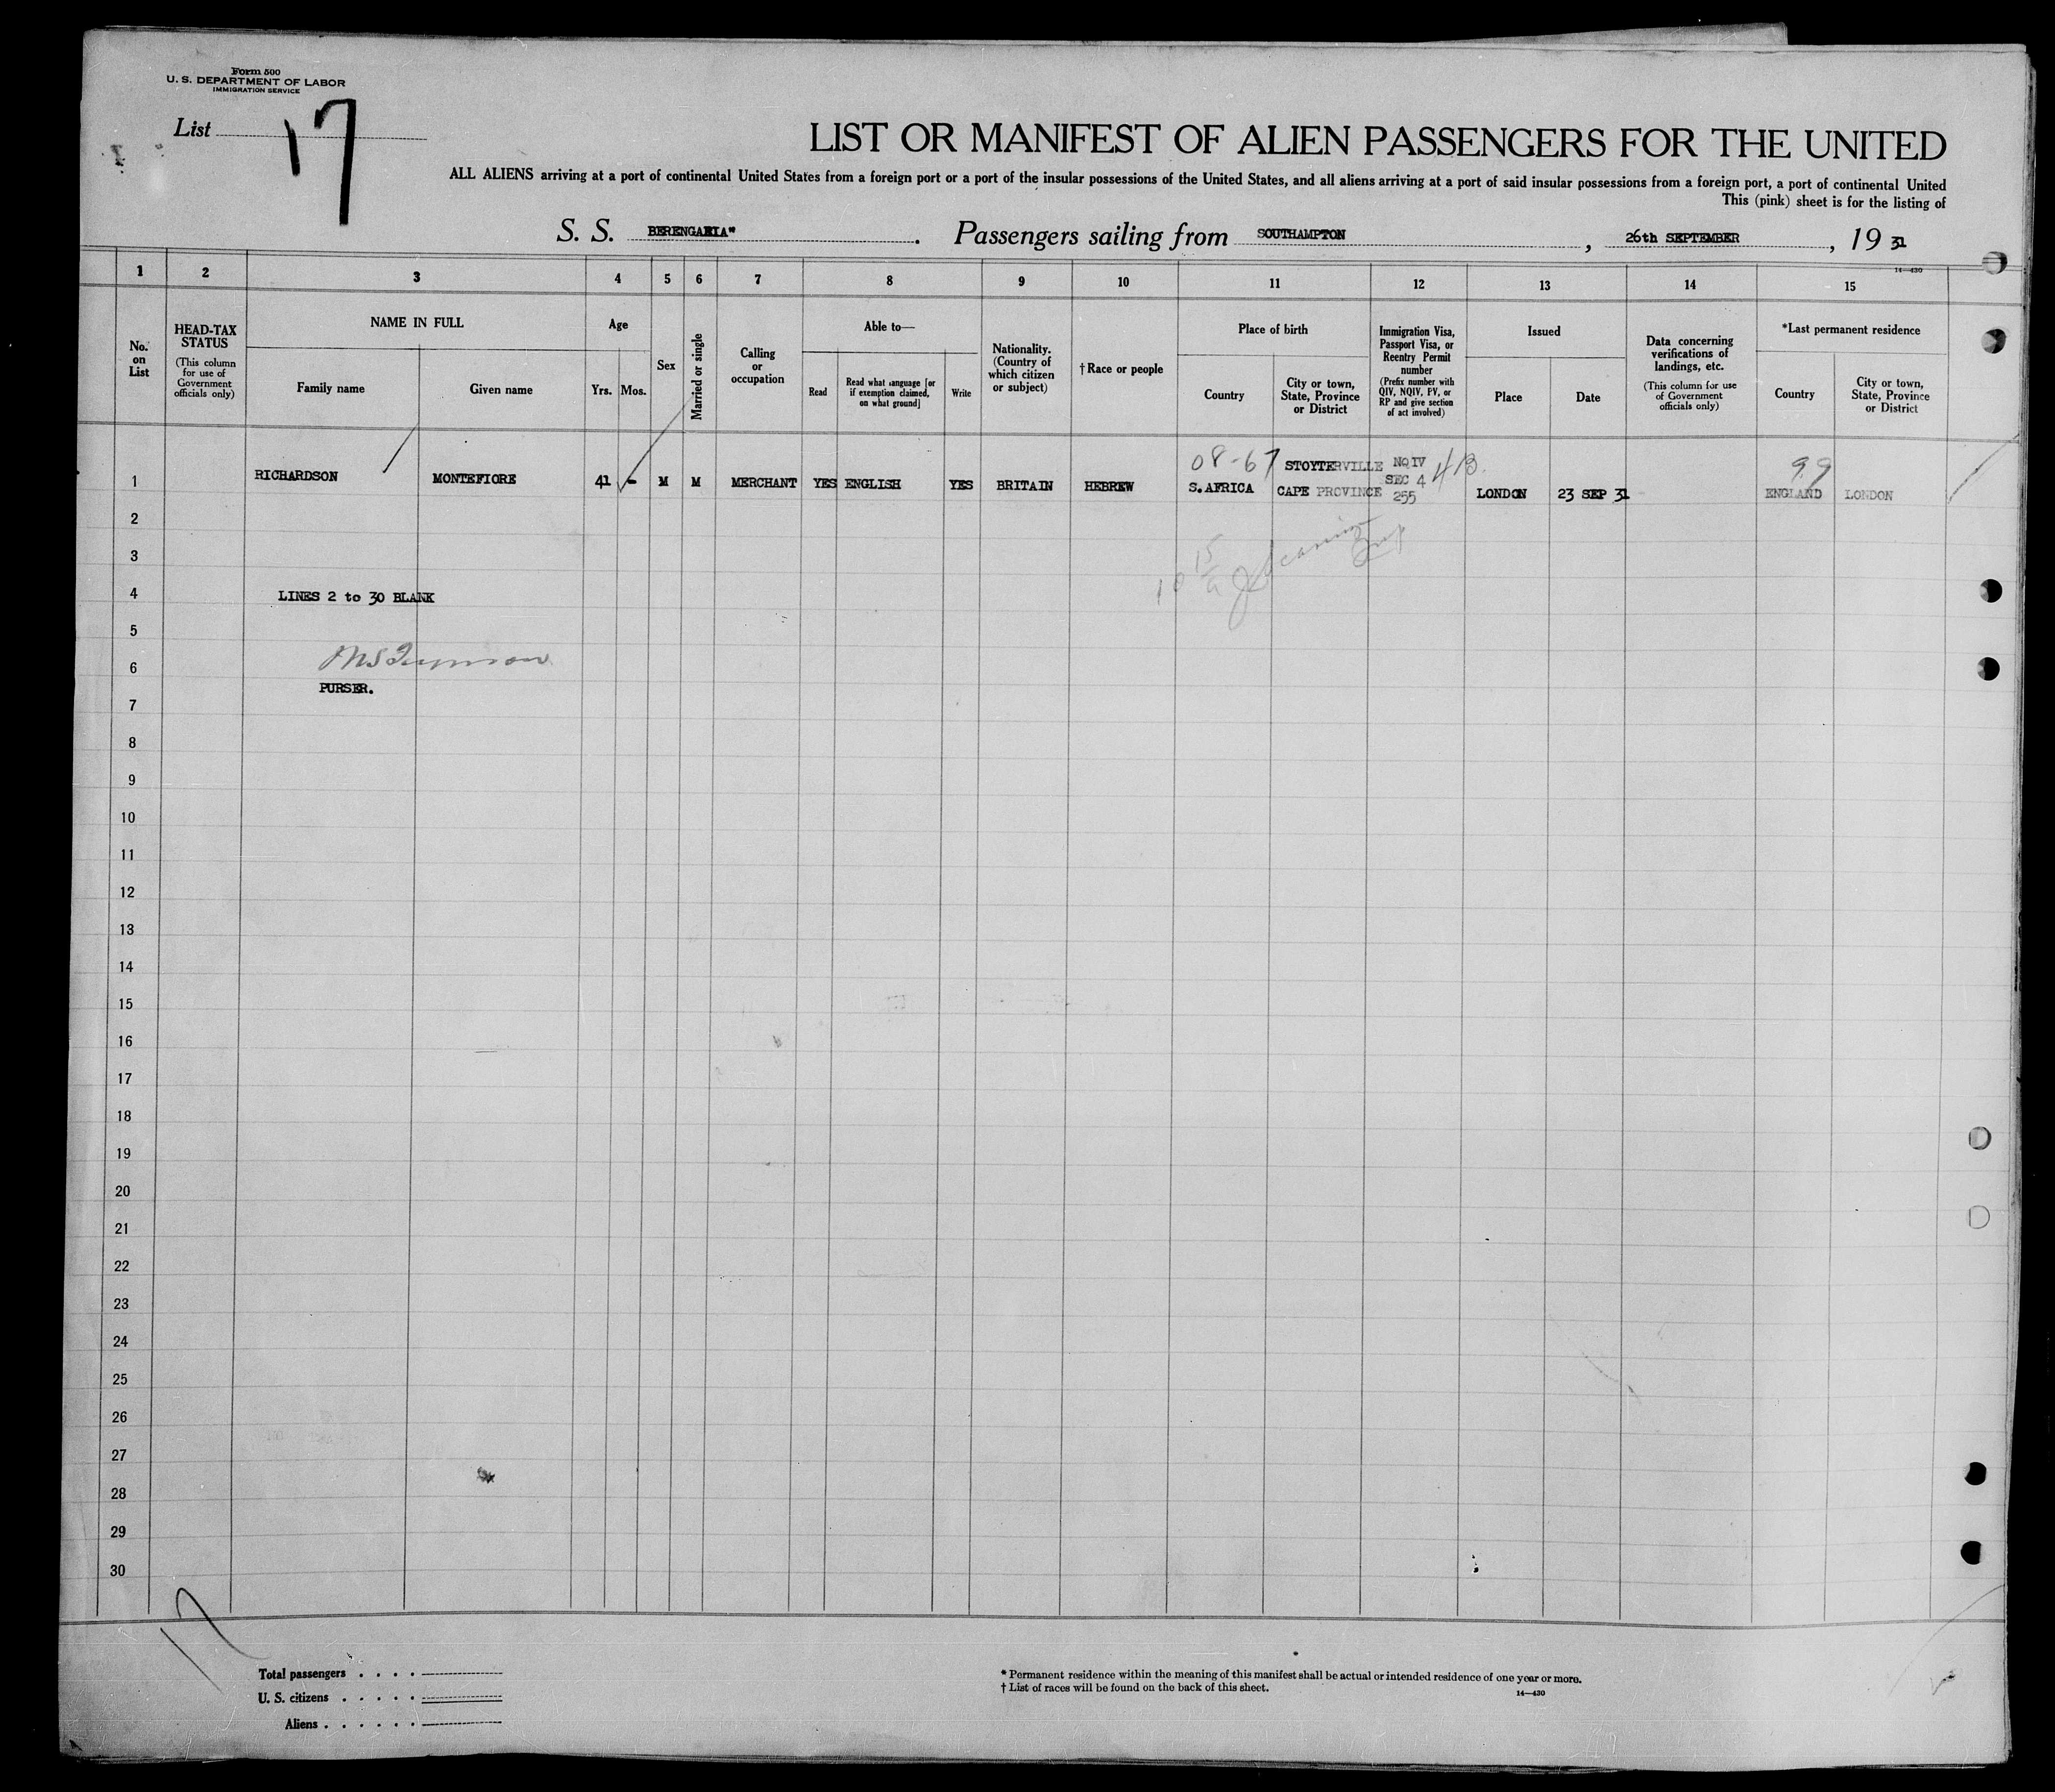 Form 500
U. S. DEPARTMENT OF LABOR
IMMIGRATION SERVICE
List 17
LIST OR MANIFEST OF ALIEN PASSENGERS FOR THE UNITED
ALL ALIENS arriving at a port of continental United States from a foreign port or a port of the insular possessions of the United States, and all aliens arriving at a port of said insular possessions from a foreign port, a port of continental United
This (pink) sheet is for the listing of
S. S. BERENGARIA" . Passengers sailing from SOUTHAMPTON , 26th SEPTEMBER , 19 31
14—430
1 2 3 4 5 6 7 8 9 10 11 12 13 14 15
No. on List
HEAD-TAX STATUS
(This column for use of Government officials only)
NAME IN FULL
Family name
Given name
Age
Yrs.
Mos.
Sex
Married or single
Calling or occupation
Able to—
Read
Read what language [or if exemption claimed, on what ground]
Write
Nationality. (Country of which citizen or subject)
†Race or people
Place of birth
Country
City or town, State, Province or District
Immigration Visa, Passport Visa, or Reentry Permit number
(Prefix number with QIV, NQIV, PV, or RP and give section of act involved)
Issued
Place
Date
Data concerning verifications of landings, etc.
(This column for use of Government officials only)
*Last permanent residence
Country
City or town, State, Province or District
08-67 STOYTERVILLE NQIV 4B 99
1 RICHARDSON MONTEFIORE 41 - M M MERCHANT YES ENGLISH YES BRITAIN HEBREW S.AFRICA CAPE PROVINCE SEC 4 255 LONDON 23 SEP 31 ENGLAND LONDON
2
3
4 LINES 2 to 30 BLANK
5
6
PURSER.
7
8
9
10
11
12
13
14
15
16
17
18
19
20
21
22
23
24
25
26
27
28
29
30
17
Total passengers . . . .
U. S. citizens . . . . .
Aliens . . . . . .
* Permanent residence within the meaning of this manifest shall be actual or intended residence of one year or more.
† List of races will be found on the back of this sheet.
14—430